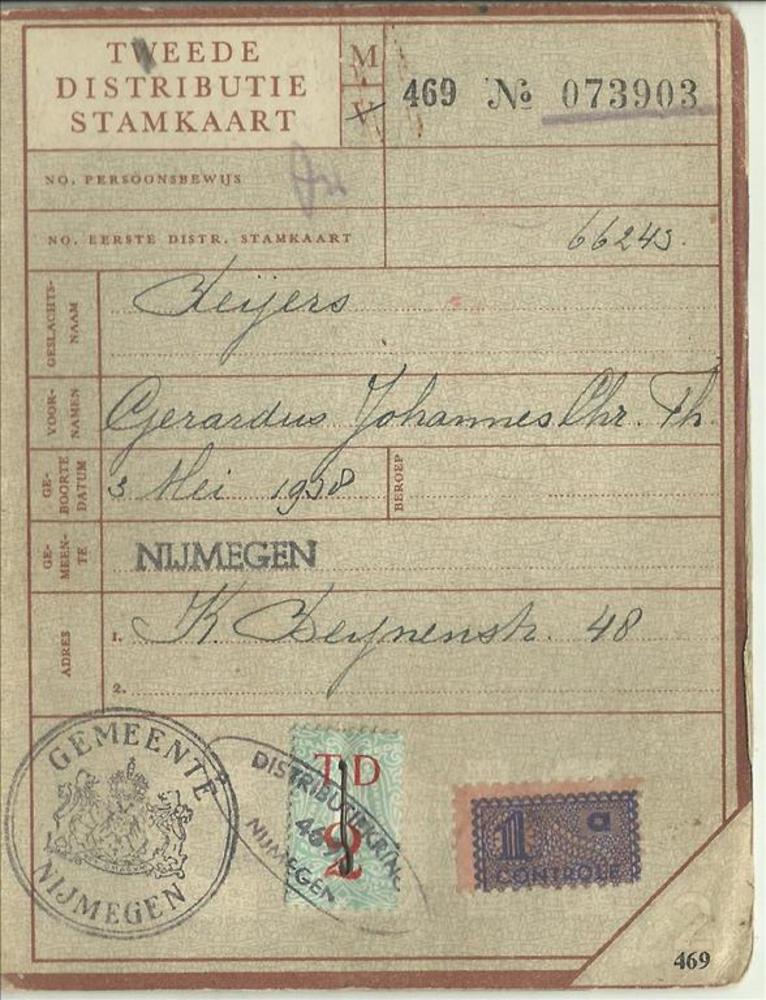 TWEEDE
DISTRIBUTIE
STAMKAART
M
469 № 073903
NO. PERSOONSBEWIJS
NO. EERSTE DISTR. STAMKAART
66245.
GESLACHTS-
NAAM
VOOR-
NAMEN
Gerardus Johannes Chr. Th.
GE-
BOORTE
DATUM
3 Mei 1938
BEROEP
GE-
MEEN-
TE
NIJMEGEN
ADRES
1. K 48
2.
GEMEENTE
NIJMEGEN
TD
2
DISTRIBUTIEKRING
469
NIJMEGEN
1 a
CONTROLE
469